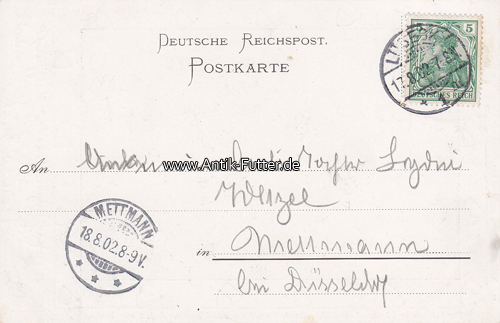 DEUTSCHE REICHSPOST.
POSTKARTE
5
17.8.02.7
DEUTSCHES REICH
www.Antik-Futter.de
An
Wetzel
METTMANN
18.8.02.8-9V.
in Mettmann
bei Düsseldorf